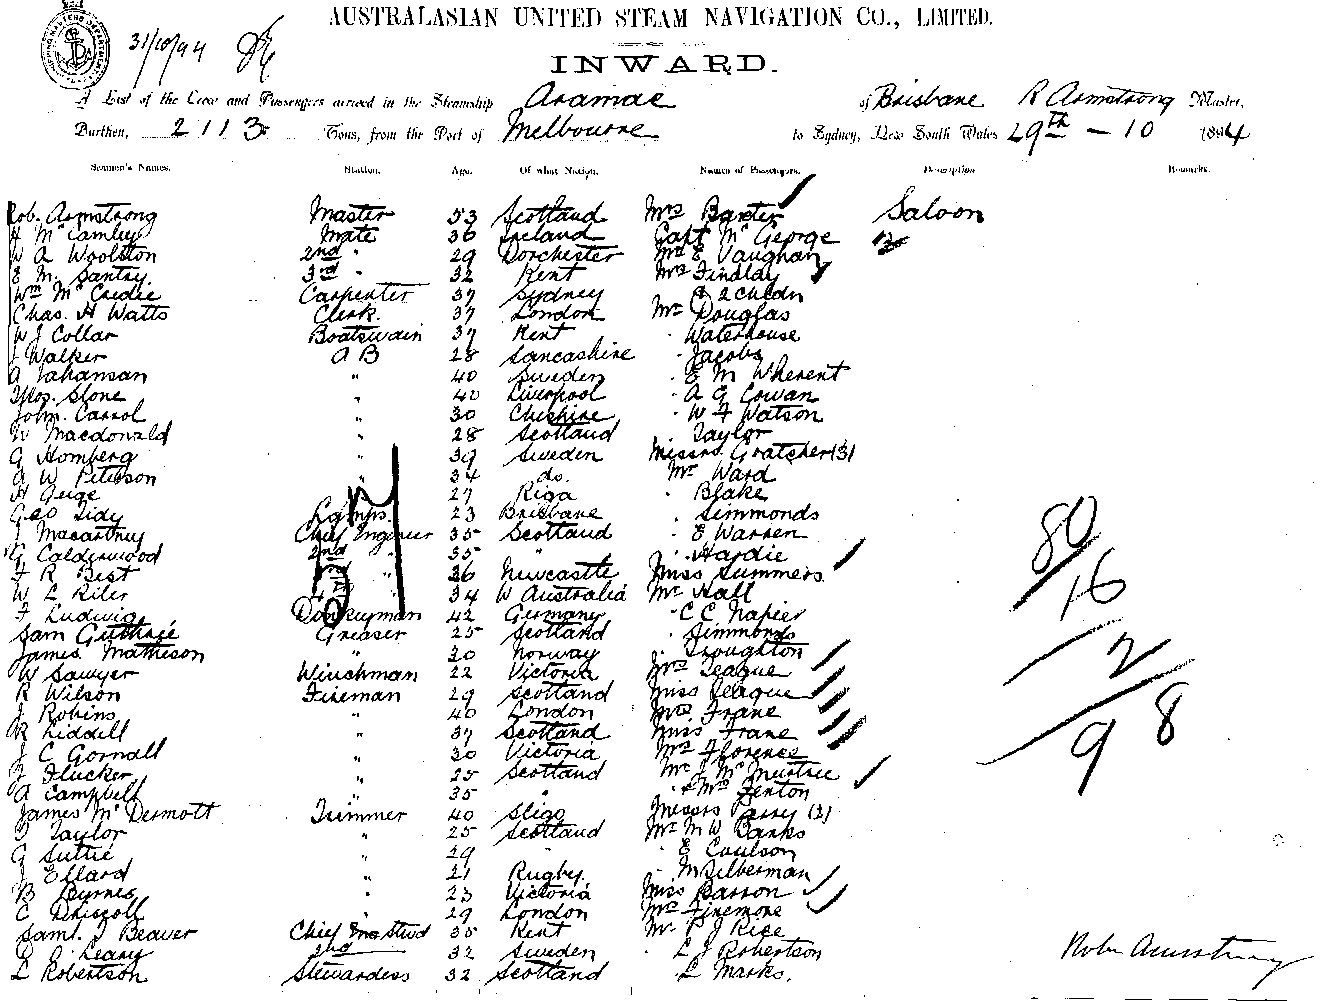 AUSTRALASIAN UNITED STEAM NAVIGATION CO., LIMITED.
31/10/94
INWARD.
A List of the Crew and Passengers arrived in the Steamship Aramac of Brisbane R Armstrong Master,
Burthen, 2113 Tons, from the Port of Melbourne to Sydney, New South Wales 29th - 10 1894
Seamen's Names. Station. Age. Of what Nation. Names of Passengers. Description Remarks.
Rob. Armstrong Master 53 Scotland Mrs Baxter Saloon
McCamley Mate 36 Ireland Capt McGeorge
W A Woolston 2nd " 29 Dorchester Mrs E Vaughan
E M. Santry 3rd " 32 Kent Mrs Findlay
Wm McCredie Carpenter 37 Sydney & 2 childn
Chas. H Watts Clerk. 37 London Mr Douglas
W J Collar Boatswain 39 Kent " Waterhouse
J Walker A B 28 Lancashire " Jacobs
A Johansan " 40 Sweden " E M Wherent
Thos. Stone " 40 Liverpool " A G Cowan
John. Carrol " 30 Cheshire " W F Watson
W Macdonald " 28 Scotland " Taylor
G Homberg " 39 Sweden Messrs Gratcher (3)
A W Peterson " 34 do. Mr Ward
H Geige " 27 Riga " Blake
Geo Tidy Lamps. 23 Brisbane " Simmonds
Macartney Chief Engineer 35 Scotland " E Warren
G Calderwood 2nd " 35 " " Hardie
F R Best " 36 Newcastle Miss Summers
W L Riler 34 W Australia Mr Hall
F Ludwig Donkeyman 42 Germany " C C Napier
Sam Guthrie Greaser 25 Scotland " Simmonds
James Mathieson " 30 Norway " Troughton
W Sawyer Winchman 22 Victoria Mrs League
R Wilson Fireman 29 Scotland Miss League
J Robins " 40 London Mrs Frane
R Liddell " 37 Scotland Miss Frane
J C Gornall " 30 Victoria Mrs Florence
J Flucker " 25 Scotland Mr J
A Campbell " 35 " " Mrs Fenton
James McDermott Trimmer 40 Sligo Messrs Parry (2)
Taylor " 25 Scotland Mr M W Banks
G Suttie " 29 " " E Coulson
J Ellard " 21 Rugby. " M Silberman
B Byrnes " 23 Victoria Miss Barron
C Driscoll " 29 London Mrs Finemore
Saml. J Beaver Chief Stwd 35 Kent Mr P J Rice
Leary 2nd 32 Sweden " L J Robertson
L Robertson Stewardess 32 Scotland " L Marks.
80
16
2
98
Robr Armstrong